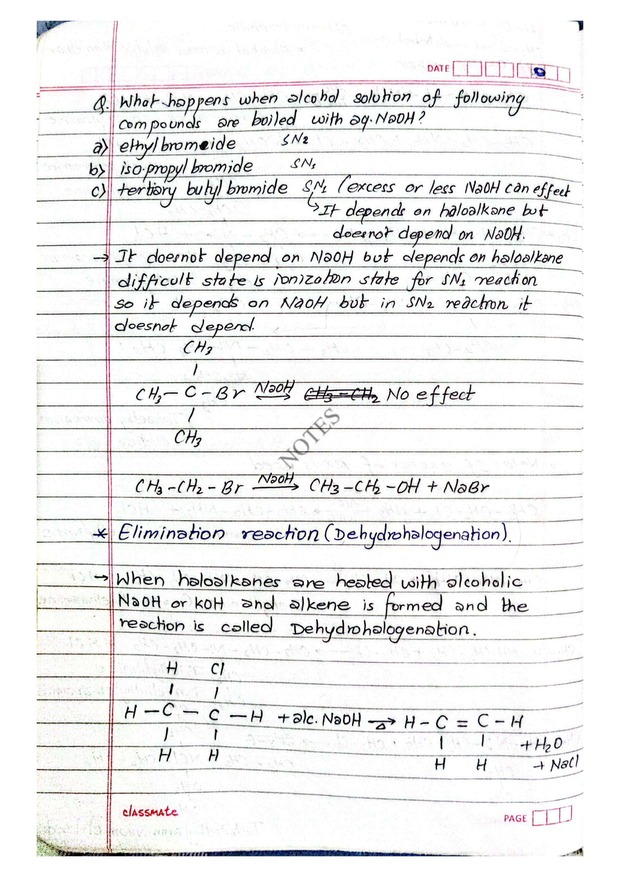 DATE
Q. What happens when alcohol solution of following
compounds are boiled with aq. NaOH?
a) ethyl bromeide SN2
b) iso propyl bromide SN1
c) tertiary butyl bromide SN1 (excess or less NaOH can effect
↳ It depends on haloalkane but
doesnot depend on NaOH.
→ It doesnot depend on NaOH but depends on haloalkane
difficult state is ionization state for SN1 reaction
so it depends on NaOH but in SN2 reaction it
doesnot depend.
CH3
CH3 – C – Br NaOH → CH3 – CH2 No effect
CH3
NOTES
CH3 – CH2 – Br NaOH → CH3 – CH2 – OH + NaBr
* Elimination reaction (Dehydrohalogenation).
→ When haloalkanes are heated with alcoholic
NaOH or KOH and alkene is formed and the
reaction is called Dehydrohalogenation.
H Cl
H – C – C – H + alc. NaOH →Δ H – C = C – H
H H H H + H2O
+ NaCl
classmate PAGE